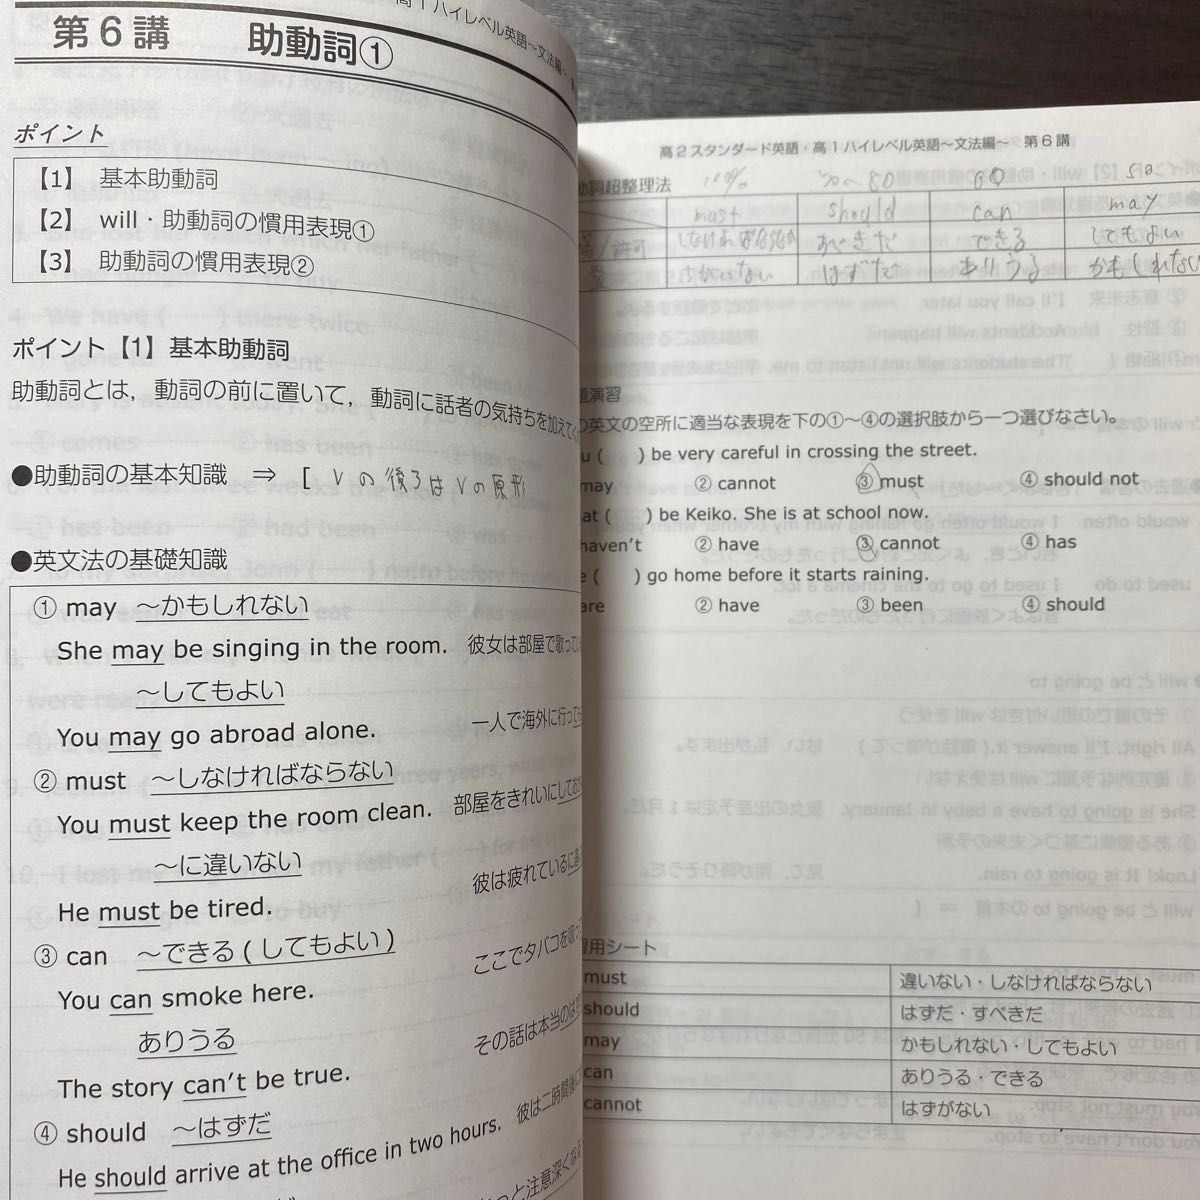 高1ハイレベル英語～文法編～
第6講　助動詞①
ポイント
【1】 基本助動詞
【2】 will・助動詞の慣用表現①
【3】 助動詞の慣用表現②
ポイント【1】基本助動詞
助動詞とは，動詞の前に置いて，動詞に話者の気持ちを加えて
●助動詞の基本知識 ⇒ [ Vの後ろはVの原形
●英文法の基礎知識
① may ～かもしれない
She may be singing in the room. 彼女は部屋で歌って
～してもよい
You may go abroad alone. 一人で海外に行って
② must ～しなければならない
You must keep the room clean. 部屋をきれいにして
～に違いない
He must be tired. 彼は疲れているに違
③ can ～できる(してもよい)
You can smoke here. ここでタバコを吸っ
ありうる
The story can't be true. その話は本当のはず
④ should ～はずだ
He should arrive at the office in two hours. 彼は二時間後に
っと注意深く
高2スタンダード英語・高1ハイレベル英語～文法編～ 第6講
動詞超整理法 100% 70～80 60 50
must should can may
/許可 しなければならない すべきだ できる してもよい
ちがいない はずだ ありうる かもしれない
題演習
の英文の空所に適当な表現を下の①～④の選択肢から一つ選びなさい。
u ( ) be very careful in crossing the street.
may ② cannot ③ must ④ should not
at ( ) be Keiko. She is at school now.
haven't ② have ③ cannot ④ has
e ( ) go home before it starts raining.
are ② have ③ been ④ should
習用シート
must 違いない・しなければならない
should はずだ・すべきだ
may かもしれない・してもよい
can ありうる・できる
cannot はずがない